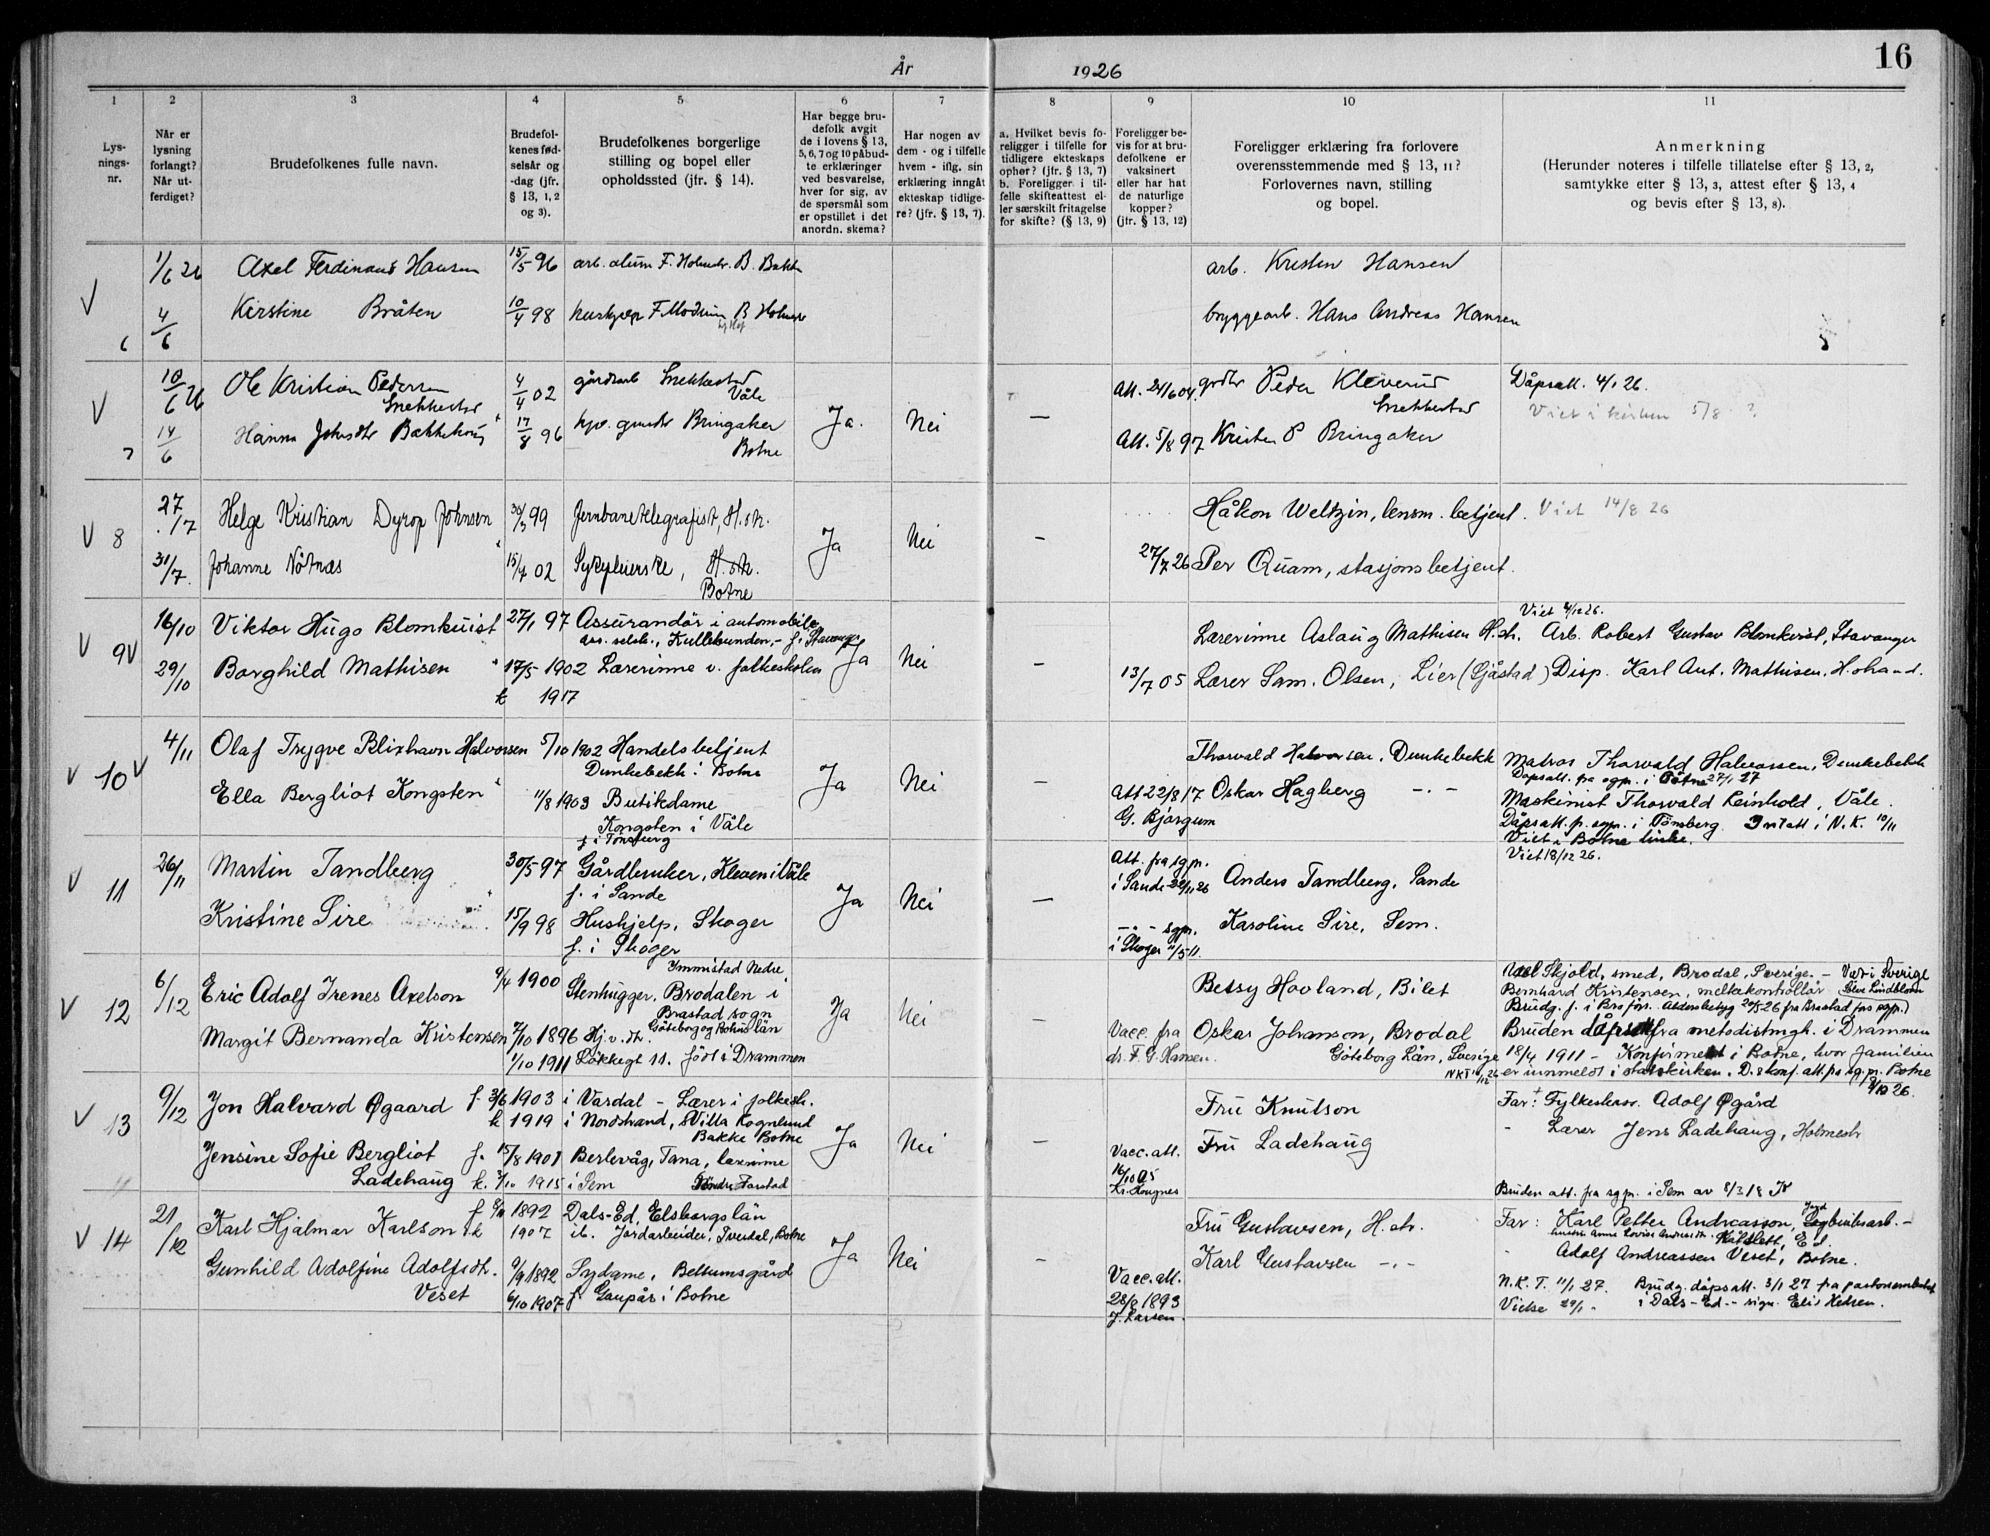 År 1926
16
1 2 3 4 5 6 7 8 9 10 11
Lys-
nings-
nr.
Når er
lysning
forlangt?
Når ut-
ferdiget?
Brudefolkenes fulle navn.
Brudefol-
kenes fød-
selsår og
-dag (jfr.
§ 13, 1, 2
og 3).
Brudefolkenes borgerlige
stilling og bopel eller
opholdssted (jfr. § 14).
Har begge bru-
defolk avgit
de i lovens § 13,
5, 6, 7 og 10 påbud-
te erklæringer
ved besvarelse,
hver for sig, av
de spørsmål som
er opstillet i det
anordn. skema?
Har nogen av
dem - og i tilfelle
hvem - iflg. sin
erklæring inngåt
ekteskap tidlige-
re? (jfr. § 13, 7).
a. Hvilket bevis fo-
religger i tilfelle for
tidligere ekteskaps
ophør? (jfr. § 13, 7)
b. Foreligger i til-
felle skifteattest el-
ler særskilt fritagelse
for skifte? (§ 13, 9)
Foreligger be-
vis for at bru-
defolkene er
vaksinert
eller har hat
de naturlige
kopper?
(jfr. § 13, 12)
Foreligger erklæring fra forlovere
overensstemmende med § 13, 11?
Forlovernes navn, stilling
og bopel.
Anmerkning
(Herunder noteres i tilfelle tillatelse efter § 13, 2,
samtykke efter § 13, 3, attest efter § 13, 4
og bevis efter § 13, 8).
V 6 1/6 26 Axel Ferdinand Hansen 15/5 96 arb. F. Holmestr. B. arb. Kristen Hansen
4/6 Kirstine Bråten 10/4 98 hushjelp F. Modum B Holmestr bryggearb. Hans Andreas Hansen
V 7 10/6 26 Ole Kristian Pedersen 4/4 02 gårdsarb Snekkestad Att. 24/6 04. grdbr Peder Kleverud Dåpsatt. 4/1 26.
Snekkestad Våle Snekkestad Viet i kirken 5/8 ?
14/6 Hanna Johsdtr Bakkehaug 17/8 96 Bringaker Ja. Nei — Att. 5/8 97 Kristen P Bringaker
Botne
V 8 27/7 Helge Kristian Dyrop Johnsen 99 Jernbanetelegrafist, H.str. Ja Nei - Håkon Weltzin, lensm. betjent. Viet 14/8 26
31/7. Johanne Nötnæs 15/7 02 Sykepleierske, H.str. 27/7 26 Per Quam, stasjonsbetjent.
Botne
Viet 4/12 26.
V 9 V 16/10 Viktor Hugo Blomkuist 27/1 97 Assurandör i automobil Lærerinne Aslaug Mathisen H.str. Arb. Robert Gustav Blomkvist, Stavanger
ass. selsk., Kullebunden, - f. i Stavanger Ja Nei -
29/10 Borghild Mathisen 17/5 1902 Lærerinne v. folkeskolen 13/7 05 Lærer Sam. Olsen, Lier (Gjåstad) Disp. Karl Ant. Mathisen, H.strand.
k 1917
V 10 V 4/11 Olaf Trygve Blixhavn Halvorsen 5/10 1902 Handelsbetjent Thorvald Halvorsen, Dunkebekk Matros Thorvald Halvorsen, Dunkebekk
Dunkebekk i Botne Ja Nei - Dåpsatt. fra sgpr. i Botne 27/1 27
Ella Bergliot Kongsten 11/8 1903 Butikdame Att 22/8 17 Oskar Hagberg -.- Maskinist Thorvald Leinhold, Våle.
Kongsten i Våle G. Bjørgum Dåpsatt. p. sgpr. i Tönsberg. Inntatt i N.K. 10/11
f. i Tönsberg Viet i Botne kirke.
V 11 26/11 Martin Tandberg 30/5 97 Gårdbruker, Kleven i Våle Att. fra sgpr. Viet 18/12 26.
f. i Sande Ja Nei - i Sande 22/11 26 Anders Tandberg, Sande
Kristine Sire 15/9 98 Hushjelp, Skoger -.- sgpr. Karoline Sire, Sem.
f. i Skoger i Skoger 11/5 11
V 12 6/12 Eric Adolf Irenes Axelson 9/4 1900 Ymmistad Nedre Betsy Hovland, Bilet Axel Skjold, smed, Brodal, Sverige. - Vær i Sverige
Stenhugger. Brodalen i Bernhard Kristensen, melkekontrollør
Brastad sogn Ja Nei - Brudg. f. i Brofors. Aldersbetyg 26/5 26 fra Brastad
Göteborg og Bohus län Vacc. fra Oskar Johanson, Brodal Bruden dåpsatt fra metodistmgh. i Drammen
Margit Bernanda Kristensen 7/10 1896 Hj. v. dr. dr. F. G. Hansen. Göteborg Län, Sverige 18/4 1911 - Konfirmert i Botne, hvor familien
1/10 1911 Lökkegt 11. född i Drammen NKT er innmeldt i statskirken. D. & konf. att. fra sg.pr. Botne
8/12 26.
V 13 9/12 Jon Halvard Øgaard f 3/6 1903 i Vardal - Lærer i folkesk. Fru Knutson Far: Fylkeskass. Adolf Øgård
k 1919 i Nordstrand, Villa Kognlund - Lærer Jens Ladehaug, Holmestr
Bakke Botne Ja Nei -
Jensine Sofie Bergliot f. 15/8 1901 Berlevåg, Tana, lærerinne Vacc. att. Fru Ladehaug
Ladehaug k. 3/10 1915 i Sem 16/10 05 Kr. Kougnes Bruden att. fra sgpr. i Sem av 8/3 18
V 14 21/12 Karl Hjalmar Karlson f. 1892 Dals-Ed, Elsborgs län Fru Gustavsen, H.str. Far: Karl Petter Andreasson, -
k 1907 ib. Jordarbeider, Tverdal, Botne Ja Nei - Ed.
Gunhild Adolfine Adolfsdtr. 9/9 1892 Sydame, Bettumsgård Vacc. att. Karl Gustavsen -.- - Adolf Andreassen Veset, Botne.
Veset 6/10 1907 f. Gaupås i Botne 28/8 1893 N.K.T. 11/1 27. Brudg. dåpsatt. 3/1 27 fra pastorsembetet
J. Larsen. Vielse 29/1 - i Dals-Ed - sign. Elis Hedren.